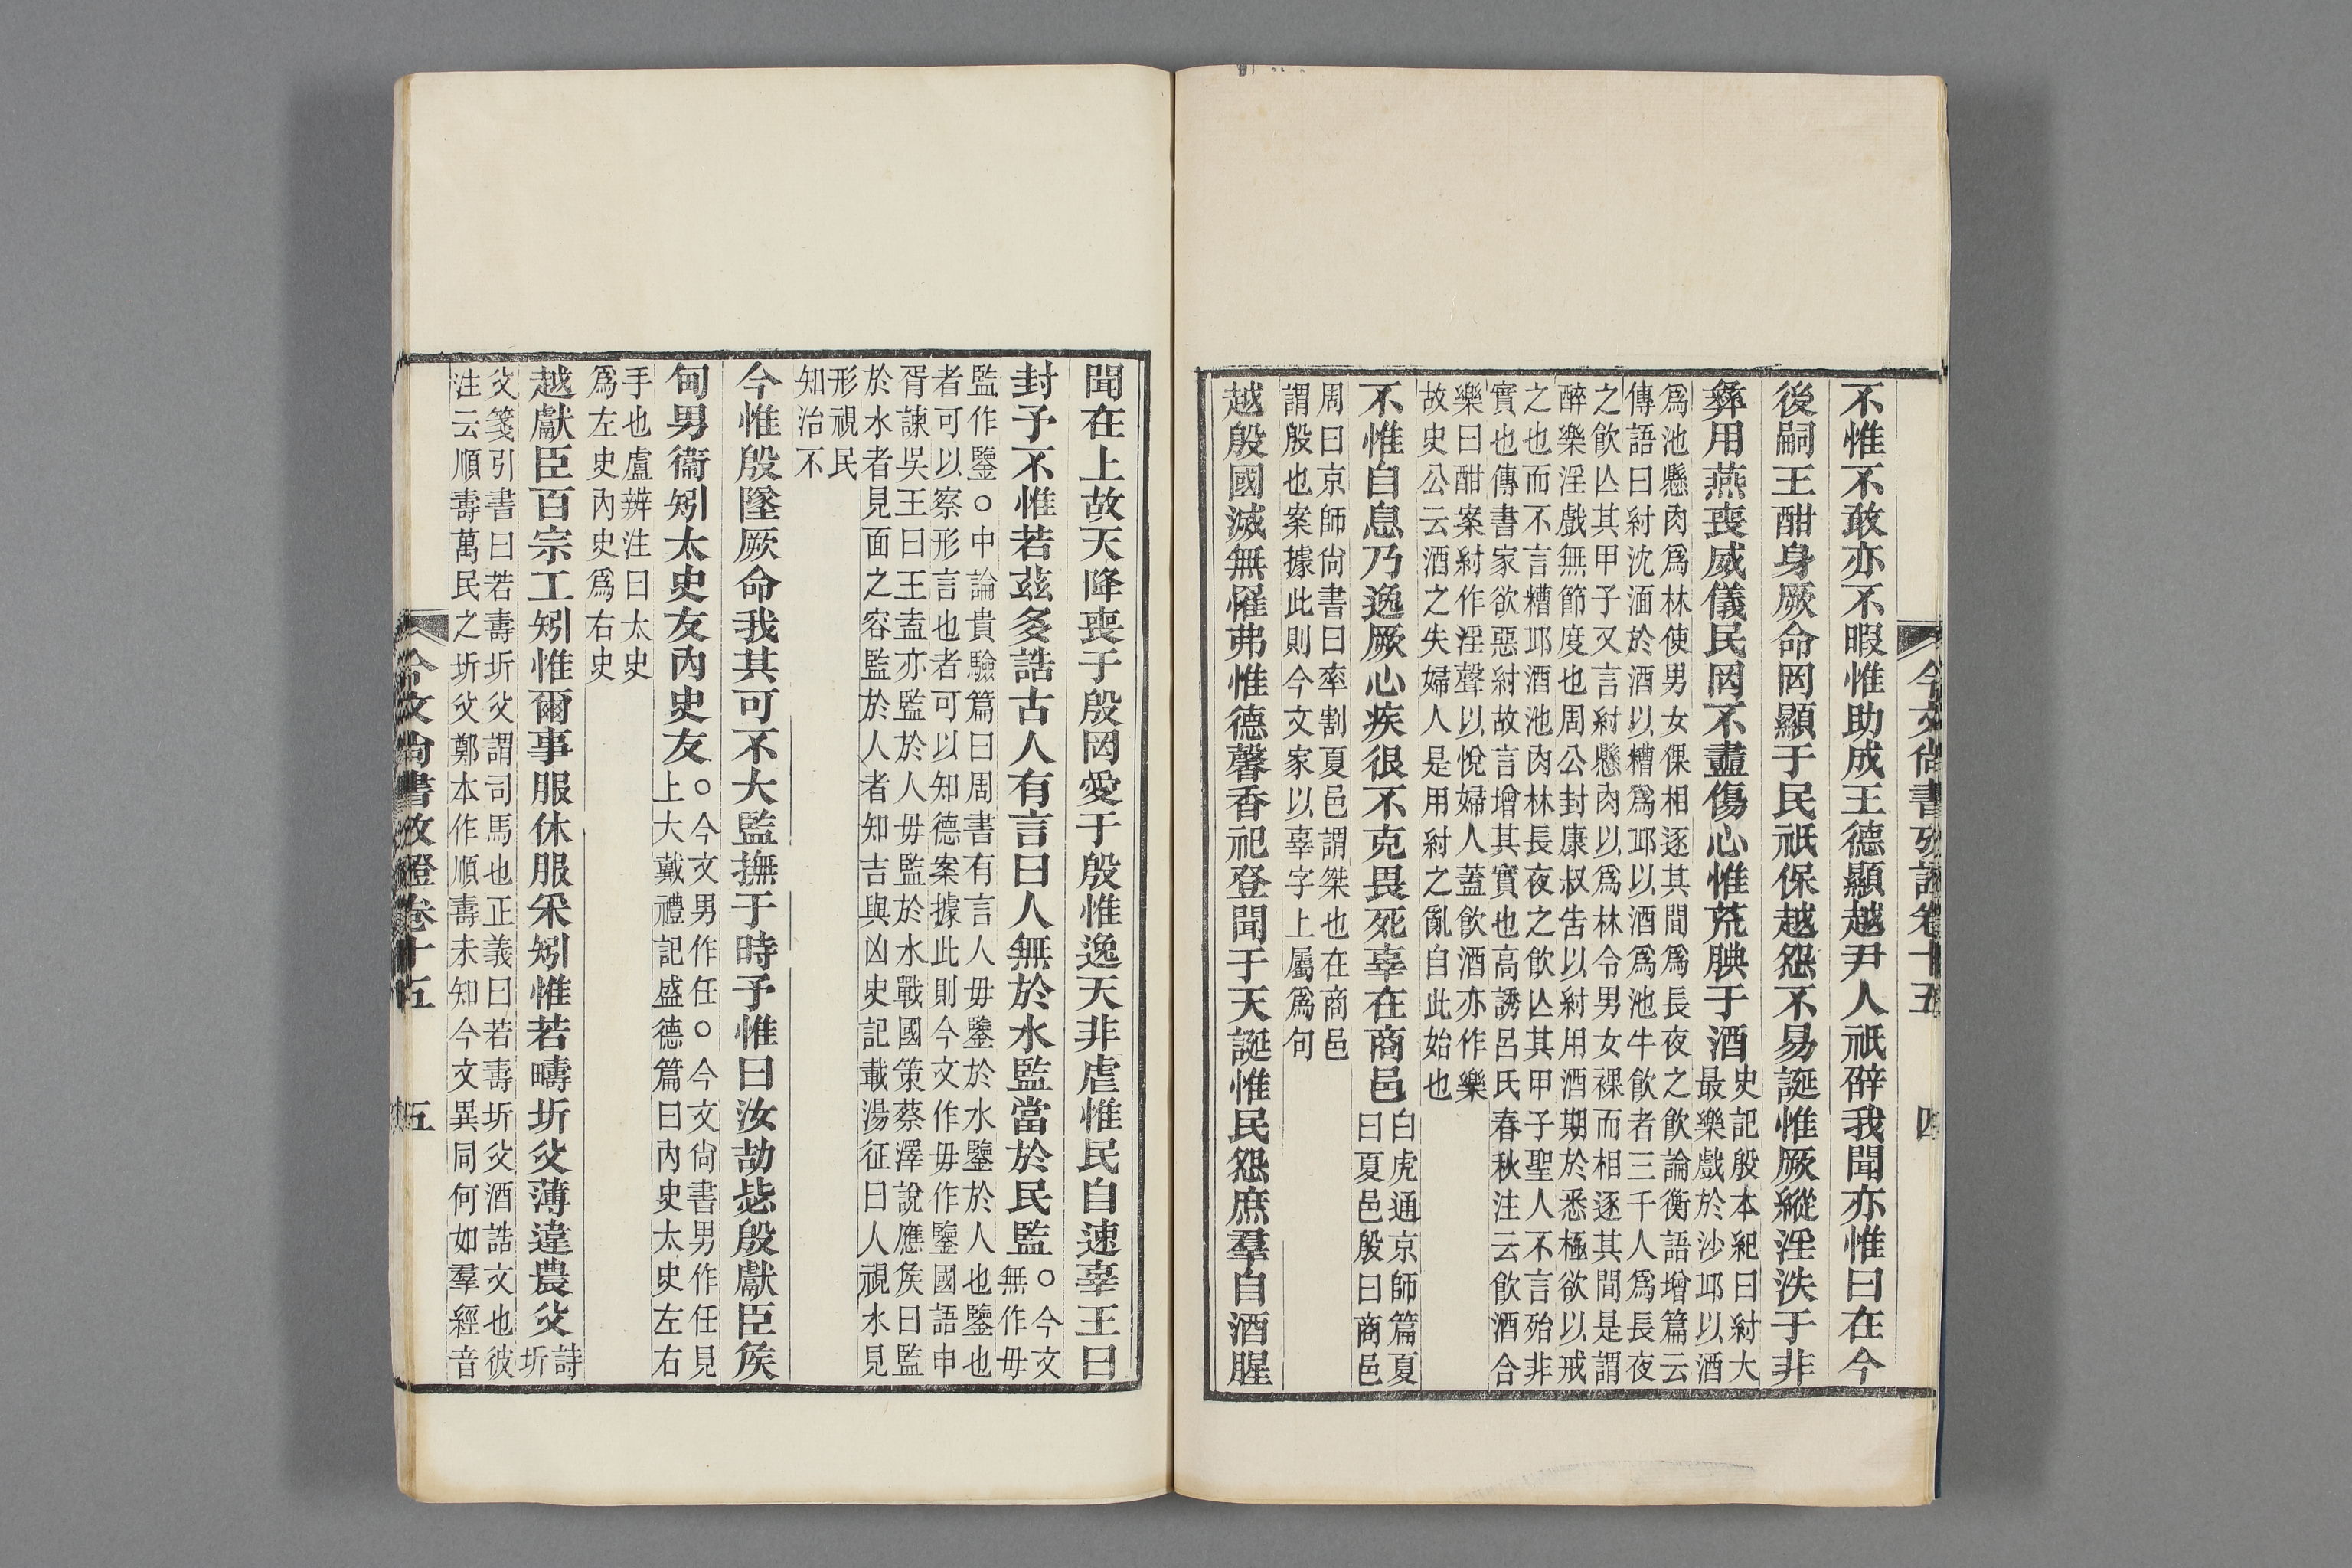 今文尚書攷證卷十五　四
不惟不敢亦不暇惟助成王德顯越尹人祇辟我聞亦惟曰在今
後嗣王酣身厥命罔顯于民祇保越怨不易誕惟厥縱淫泆于非
彝用燕喪威儀民罔不衋傷心惟荒腆于酒
史記殷本紀曰紂大
最樂戲於沙邱以酒
爲池懸肉爲林使男女倮相逐其間爲長夜之飲論衡語增篇云
傳語曰紂沈湎於酒以糟爲邱以酒爲池牛飲者三千人爲長夜
之飲亾其甲子又言紂懸肉以爲林令男女裸而相逐其間是謂
醉樂淫戲無節度也周公封康叔告以紂用酒期於悉極欲以戒
之也而不言糟邱酒池肉林長夜之飲亾其甲子聖人不言殆非
實也傳書家欲惡紂故言增其實也高誘呂氏春秋注云飲酒合
樂曰酣案紂作淫聲以悅婦人蓋飲酒亦作樂
故史公云酒之失婦人是用紂之亂自此始也
不惟自息乃逸厥心疾很不克畏死辜在商邑
白虎通京師篇夏
曰夏邑殷曰商邑
周曰京師尙書曰率割夏邑謂桀也在商邑
謂殷也案據此則今文家以辜字上屬爲句
越殷國滅無罹弗惟德馨香祀登聞于天誕惟民怨庶羣自酒腥
聞在上故天降喪于殷罔愛于殷惟逸天非虐惟民自速辜王曰
封予不惟若茲多誥古人有言曰人無於水監當於民監
○今文
無作毋
監作鑒○中論貴驗篇曰周書有言人毋鑒於水鑒於人也鑒也
者可以察形言也者可以知德案據此則今文作毋作鑒國語申
胥諫吳王曰王盍亦監於人毋監於水戰國策蔡澤說應矦曰監
於水者見面之容監於人者知吉與凶史記載湯征曰人視水見
形視民
知治不
今惟殷墜厥命我其可不大監撫于時予惟曰汝劼毖殷獻臣矦
甸男衞矧太史友內史友
○今文男作任○今文尙書男作任見
上大戴禮記盛德篇曰內史太史左右
手也盧辨注曰太史
爲左史內史爲右史
越獻臣百宗工矧惟爾事服休服采矧惟若疇圻父薄違農父
詩
圻
父箋引書曰若壽圻父謂司馬也正義曰若壽圻父酒誥文也彼
注云順壽萬民之圻父鄭本作順壽未知今文異同何如羣經音
今文尙書攷證卷十五　五